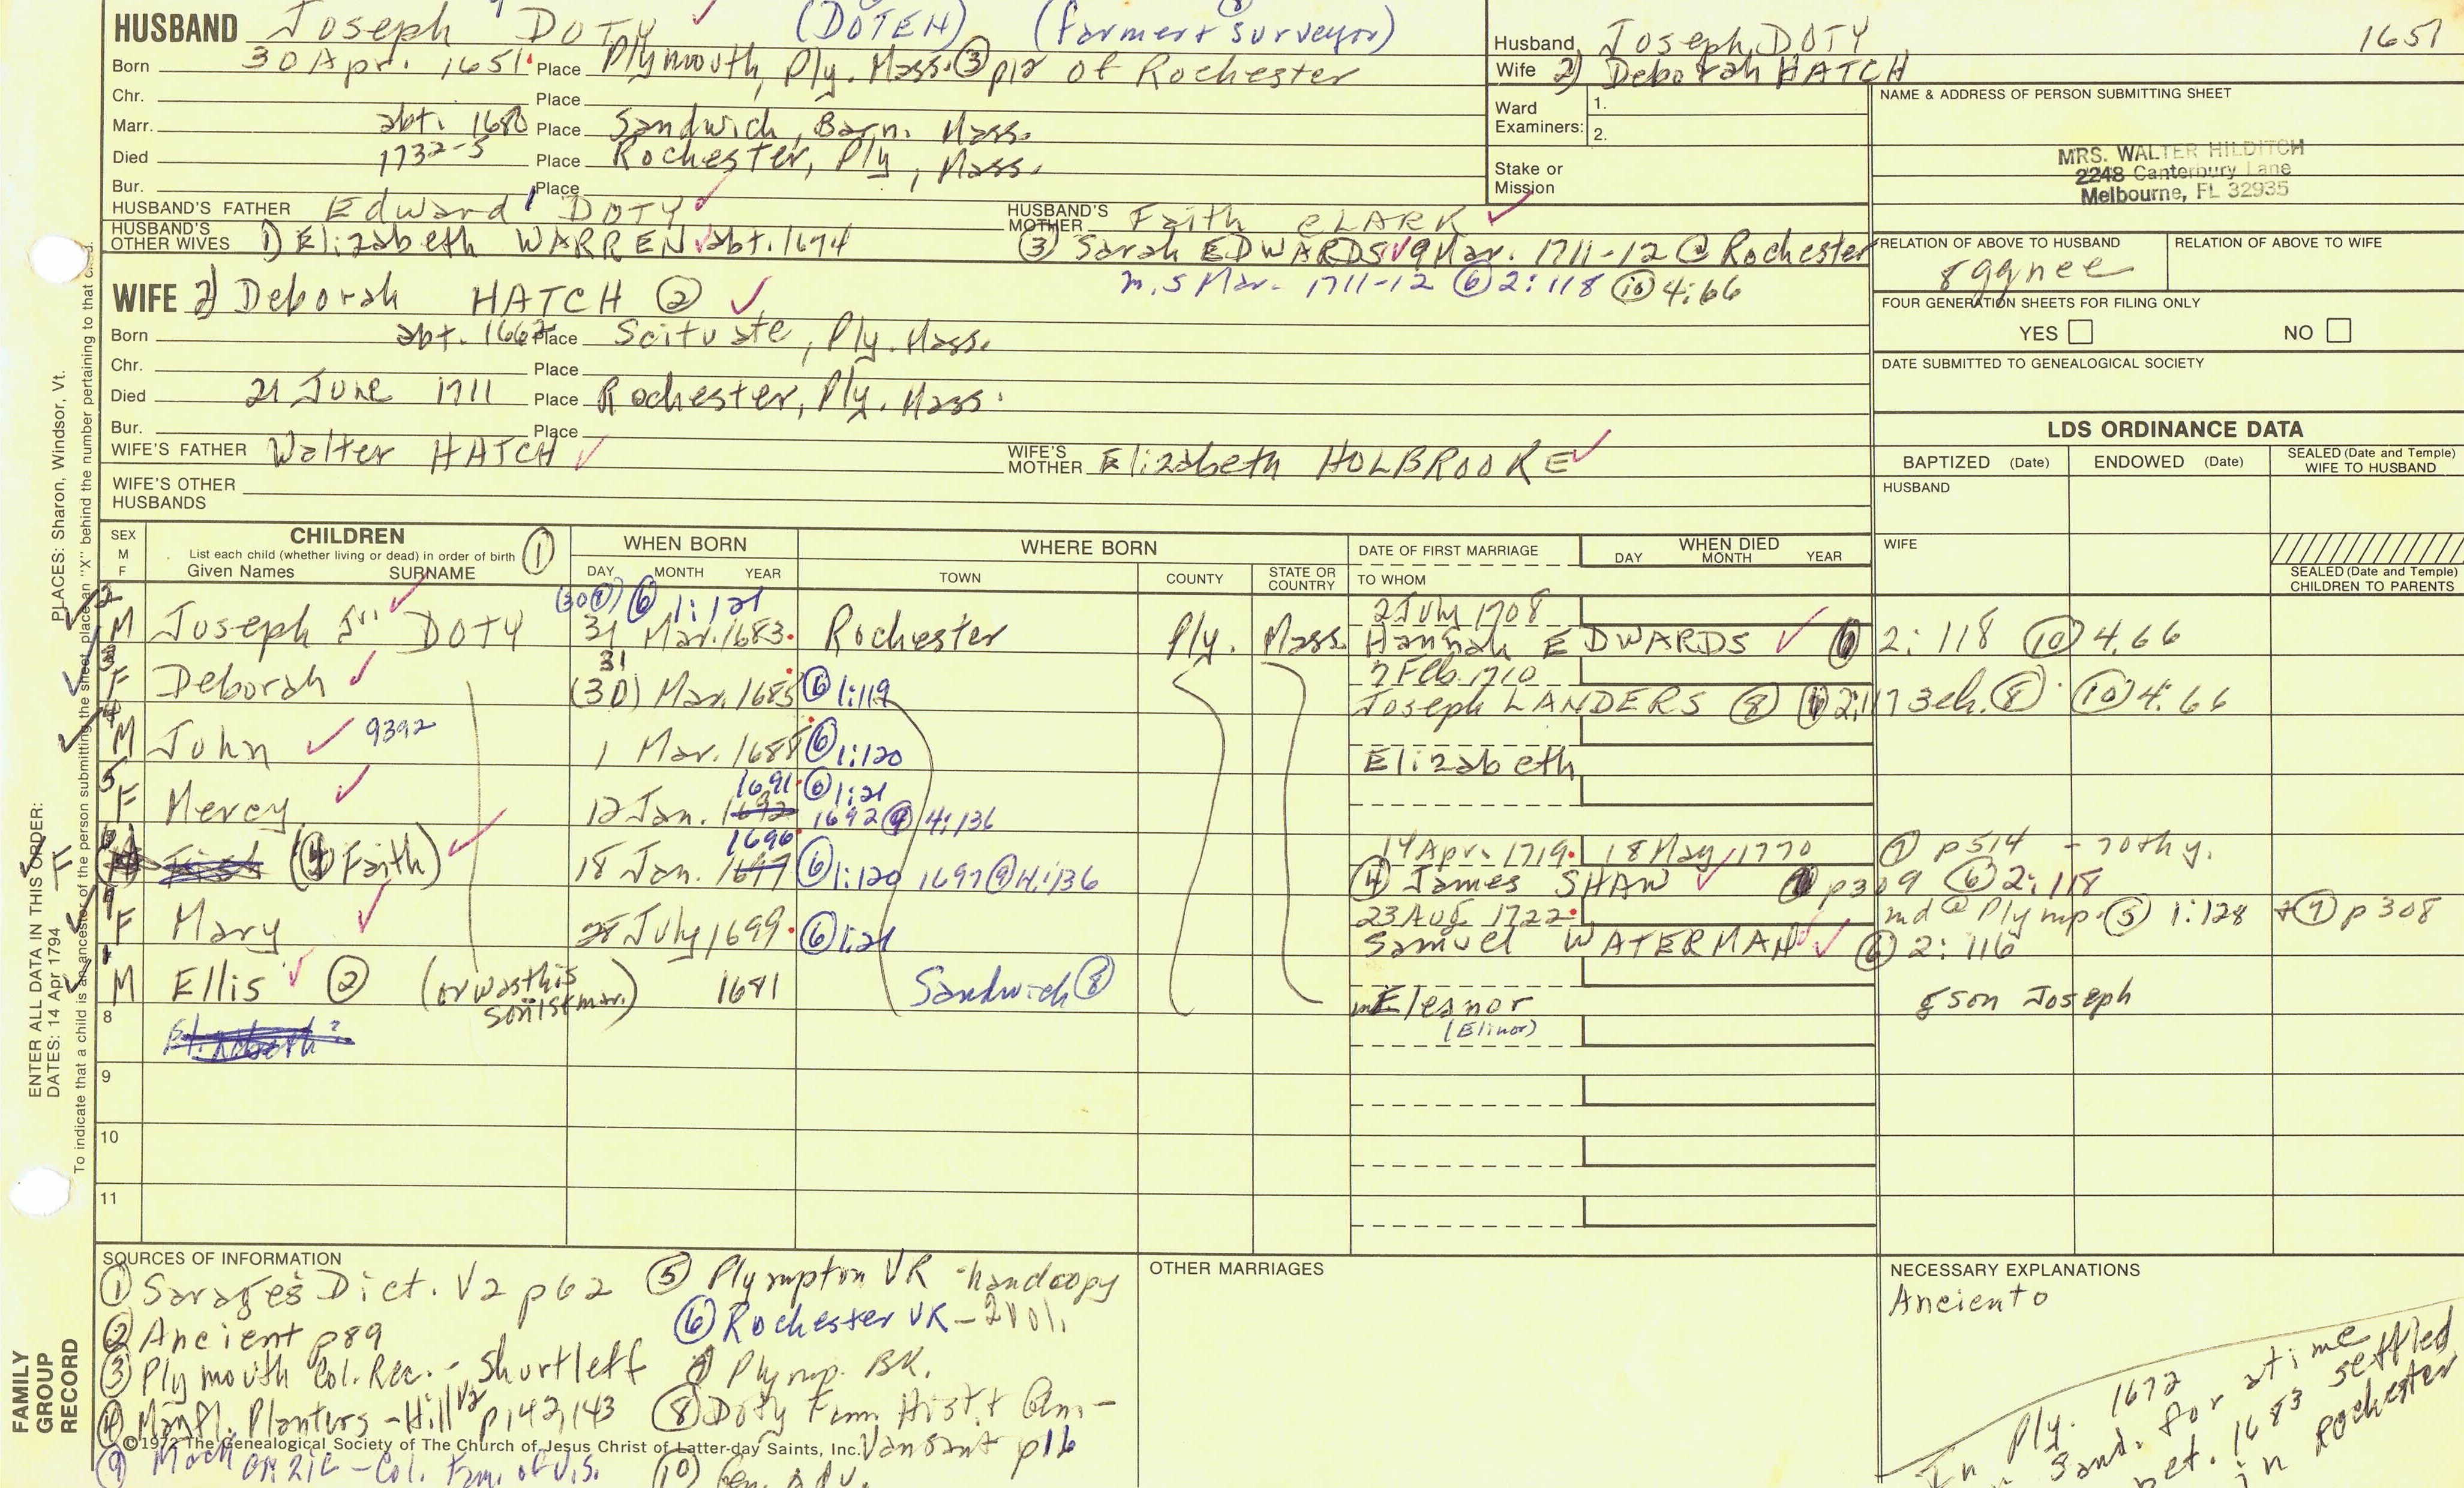 HUSBAND Joseph DOTY (DOTEN) (farmer + surveyor)
Born 30 Apr. 1651 Place Plymouth, Ply. Mass. ③ p12 of Rochester
Chr. Place
Marr. abt. 1680 Place Sandwich, Barn. Mass.
Died 1732-5 Place Rochester, Ply, Mass.
Bur. Place
HUSBAND'S FATHER Edward DOTY HUSBAND'S MOTHER Faith CLARK
HUSBAND'S OTHER WIVES 1) Elizabeth WARREN abt. 1674 ③ Sarah EDWARDS 9 Mar. 1711-12 @ Rochester
m. 5 Mar. 1711-12 ⑥ 2:118 ⑩ 4:66
WIFE 2) Deborah HATCH ②
Born abt. 1662 Place Scituate, Ply. Mass.
Chr. Place
Died 21 June 1711 Place Rochester, Ply. Mass.
Bur. Place
WIFE'S FATHER Walter HATCH WIFE'S MOTHER Elizabeth HOLBROOKE
WIFE'S OTHER HUSBANDS
Husband Joseph DOTY 1651
Wife 2) Deborah HATCH
Ward Examiners: 1.
2.
Stake or Mission
NAME & ADDRESS OF PERSON SUBMITTING SHEET
MRS. WALTER HILDITCH
2248 Canterbury Lane
Melbourne, FL 32935
RELATION OF ABOVE TO HUSBAND RELATION OF ABOVE TO WIFE
8ggnee
FOUR GENERATION SHEETS FOR FILING ONLY
YES NO
DATE SUBMITTED TO GENEALOGICAL SOCIETY
LDS ORDINANCE DATA
BAPTIZED (Date) ENDOWED (Date) SEALED (Date and Temple) WIFE TO HUSBAND
HUSBAND
WIFE
SEALED (Date and Temple) CHILDREN TO PARENTS
SEX M F CHILDREN ① List each child (whether living or dead) in order of birth Given Names SURNAME
WHEN BORN DAY MONTH YEAR
WHERE BORN TOWN COUNTY STATE OR COUNTRY
DATE OF FIRST MARRIAGE TO WHOM
WHEN DIED DAY MONTH YEAR
(30 ①) ⑥ 1:121 2 July 1708
2 M Joseph Jr. DOTY 31 Mar. 1683 Rochester Ply. Mass. Hannah EDWARDS ⑥ 2:118 ⑩ 4.66
31 7 Feb. 1710
3 F Deborah (30) Mar. 1685 ⑥ 1:119 Joseph LANDERS ⑧ ⑥ 2:117 3ch. ⑧ ⑩ 4:66
4 M John 9392 1 Mar. 1688 ⑥ 1:120 Elizabeth
1691 ⑥ 1:121
5 F Mercy 12 Jan. 1692 1692 ⑨ 4:136
1696 14 Apr. 1719 18 May 1770 ⑦ p514 - 70th y.
6 F (④ Faith) 18 Jan. 1697 ⑥ 1:120 1697 ⑨ 4:136 ④ James SHAW p309 ⑥ 2:118
23 Aug. 1722 md @ Plymp. ⑤ 1:128 + ⑦ p308
7 F Mary July 1699 ⑥ 1:121 Samuel WATERMAN ⑥ 2:116
1 M Ellis ② (or was this son 1st mar.) 1681 Sandwich ⑧ m Eleanor (Elinor) gson Joseph
8
9
10
11
SOURCES OF INFORMATION
① Savage's Dict. V2 p62 ⑤ Plympton VR - handcopy
② Ancient p89 ⑥ Rochester VR - 2 vol.
③ Plymouth Col. Rec. - Shurtleff ⑦ Plymp. BK.
④ Mayfl. Planters - Hill V2 p142,143 ⑧ Doty Fam. Hist. + Gen. -
Vansant p16
©1972 The Genealogical Society of The Church of Jesus Christ of Latter-day Saints, Inc.
⑨ Mack - Col. Fam. of U.S. ⑩ Gen. Adv.
OTHER MARRIAGES
NECESSARY EXPLANATIONS
In Ply. 1672
Sand. for a time
bet. 1683 settled
in Rochester
ENTER ALL DATA IN THIS ORDER:
DATES: 14 Apr 1794 PLACES: Sharon, Windsor, Vt.
To indicate that a child is an ancestor of the person submitting the sheet, place an "X" behind the number pertaining to that child.
FAMILY GROUP RECORD